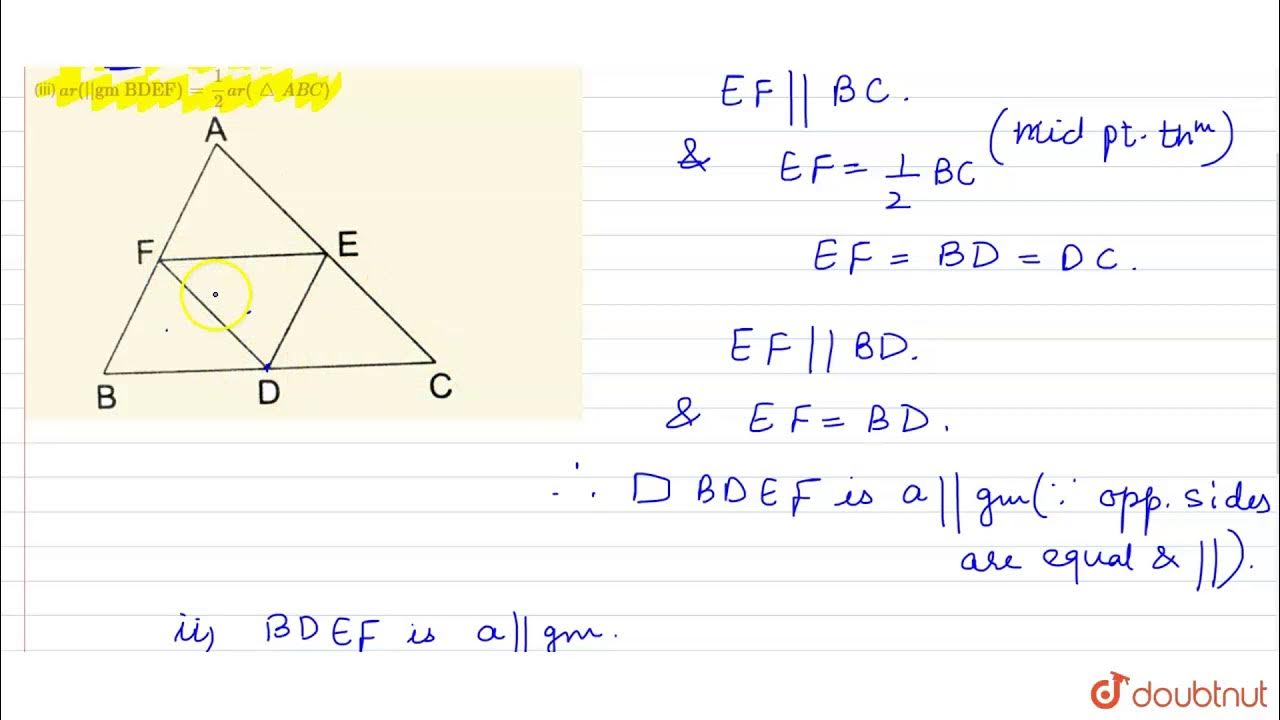 (iii) ar(||gm BDEF) = 1/2 ar(△ABC)
A
F
E
B
D
C
EF || BC.
& EF = 1/2 BC (mid pt. thm)
EF = BD = DC.
EF || BD.
& EF = BD.
∴ ▱ BDEF is a ||gm (∵ opp. sides
are equal & ||).
ii) BDEF is a ||gm.
doubtnut